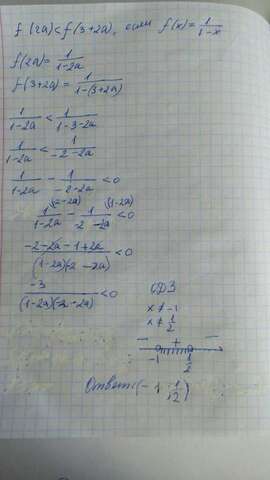 f(2a)<f(3+2a), если f(x)=1/(1-x)
f(2a)=1/(1-2a)
f(3+2a)=1/(1-(3+2a))
1/(1-2a) < 1/(1-3-2a)
1/(1-2a) < 1/(-2-2a)
1/(1-2a) - 1/(-2-2a) <0
(-2-2a) (1-2a)
1/(1-2a) - 1/(-2-2a) <0
(-2-2a-1+2a)/((1-2a)(-2-2a)) <0
-3/((1-2a)(-2-2a)) <0
ОДЗ
x≠-1
x≠1/2
- + -
-1 1/2
Ответ: (-1; 1/2)